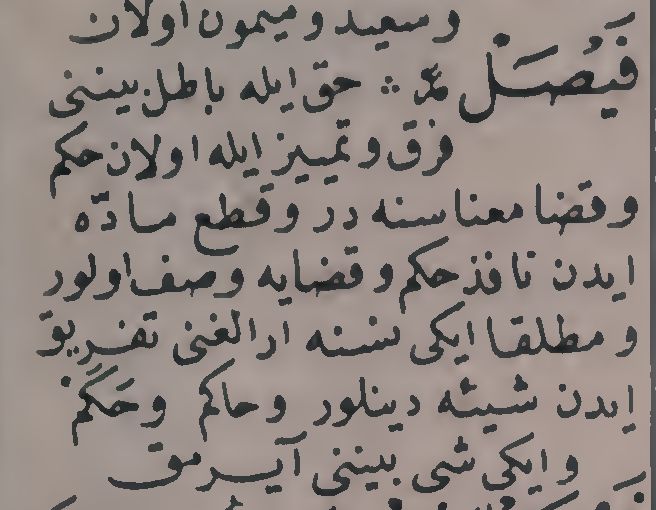 وسعيد و ميمون اولان
فَيْصَلْ عر ؞ حق ايله باطل بيننى
فرق و تمييز ايله اولان حكم
و قضا معناسنه در و قطع مادّه
ايدن نافذ حكم و قضايه وصف اولور
و مطلقا ايكى نسنه ارالغنى تفريق
ايدن شيئه دينلور و حاكم و حَكَم
و ايكى شى بيننى آيرمق